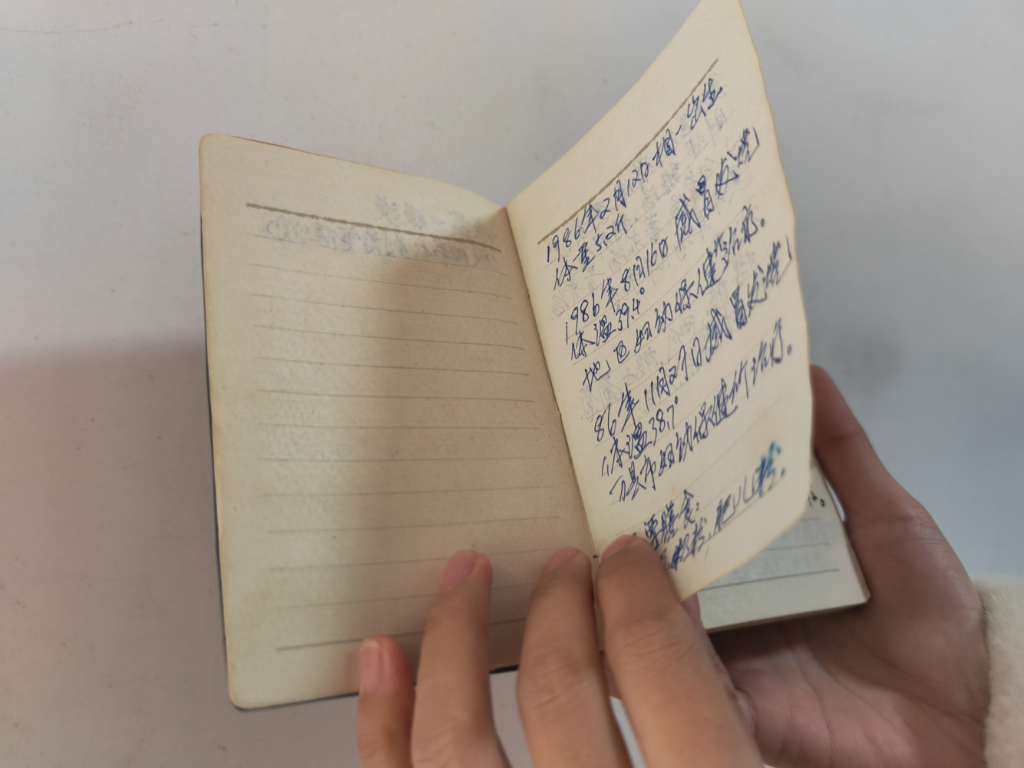 1986年2月12日相一出生
体重5.2斤
1986年8月16日感冒发烧
体温39.4°
地区妇幼保健站治疗。
86年11月27日感冒发烧
体温38.7°
县市妇幼保健所治疗。
肥儿粉。